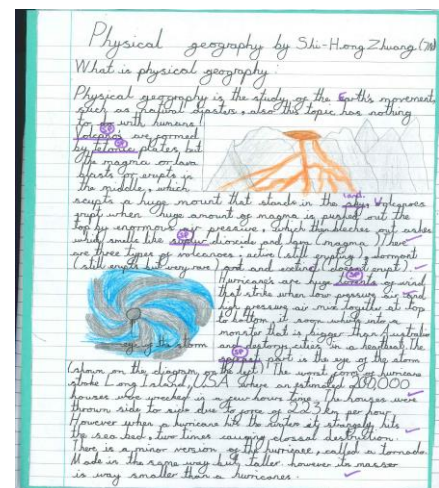 Physical geography by Shi-Hong Zhuang
What is physical geography:
Physical geography is the study of the Earth's movement,
such as natural disasters, also this topic has nothing
to do with humans.
Volcanos are formed
by tetonic plates, but
the magma or lava
blasts or erupts in
the middle, which
sculpts a huge mount that stands in the sky. Volcanoes
erupt when huge amount of magma is pushed out the
top by enormous pressure, which then bleches out ashes
which smells like dioxide and lava (magma). There
are three types of volcanoes, active (still erupting), dormant
(still erupts but very rare) and extinct
Hurricanes are huge of wind
that strike when low pressure air and
high pressure air mix together at top
to bottom it soon into a
monster that is bigger than
and destorys cities in a heartbeat. The
eye of the storm
part is the eye of the storm
(shown on the diagram on the left). The worst force of hurricane
stroke Long Island, USA where an estimated 200,000
houses were wrecked in a few hours time. The houses were
thrown side to side due to force of 223 km per hour.
However when a hurricane hits the it strangely hits
the sea bed, two times causing clossal destruction.
There is a minor version of the hurricane, called a tornado.
Made in the same way but taller. however its
is way smaller than a hurricanes.